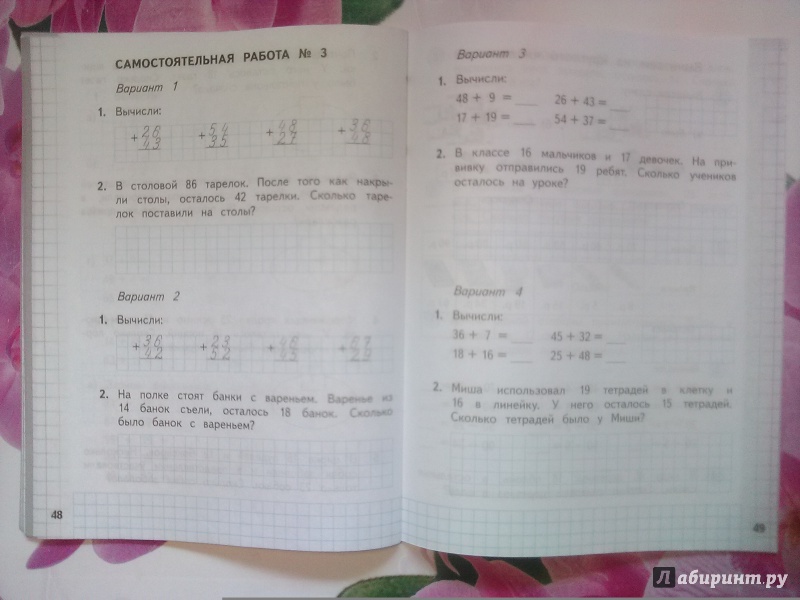 САМОСТОЯТЕЛЬНАЯ РАБОТА № 3
Вариант 1
1. Вычисли:
+26 +54 +48 +36
43 35 27 48
2. В столовой 86 тарелок. После того как накры-
ли столы, осталось 42 тарелки. Сколько таре-
лок поставили на столы?
Вариант 2
1. Вычисли:
+36 +23
42 52
2. На полке стоят банки с вареньем. Варенье из
14 банок съели, осталось 18 банок. Сколько
было банок с вареньем?
48
Вариант 3
1. Вычисли:
48 + 9 = ___ 26 + 43 = ___
17 + 19 = ___ 54 + 37 = ___
2. В классе 16 мальчиков и 17 девочек. На при-
вивку отправились 19 ребят. Сколько учеников
осталось на уроке?
Вариант 4
1. Вычисли:
36 + 7 = ___ 45 + 32 = ___
18 + 16 = ___ 25 + 48 = ___
2. Миша использовал 19 тетрадей в клетку и
16 в линейку. У него осталось 15 тетрадей.
Сколько тетрадей было у Миши?
49
Лабиринт.ру